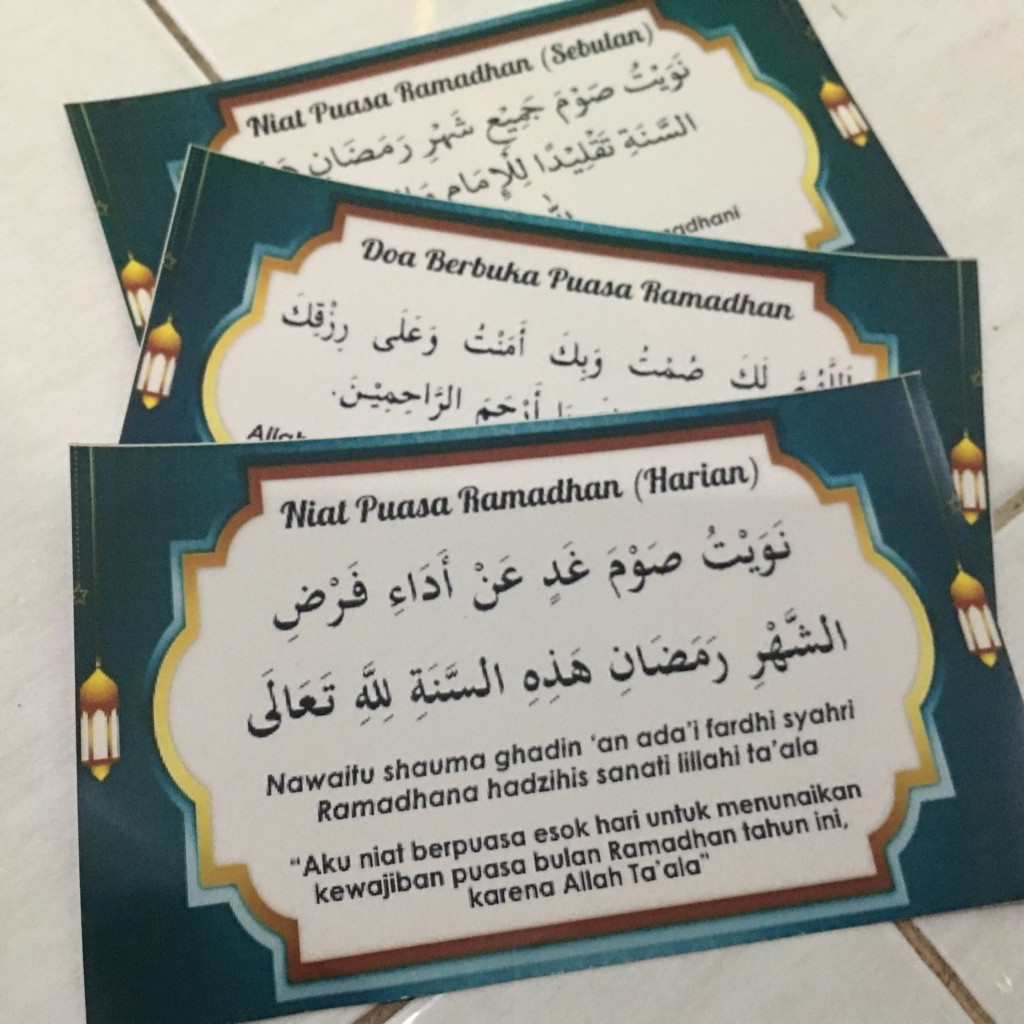 Niat Puasa Ramadhan (Sebulan)
نَوَيْتُ صَوْمَ جَمِيْعِ شَهْرِ رَمَضَانِ
السَّنَةِ تَقْلِيْدًا لِلْإِمَامِ
Doa Berbuka Puasa Ramadhan
اَللَّهُمَّ لَكَ صُمْتُ وَبِكَ أَمَنْتُ وَعَلَى رِزْقِكَ
يَا أَرْحَمَ الرَّاحِمِيْنَ.
Niat Puasa Ramadhan (Harian)
نَوَيْتُ صَوْمَ غَدٍ عَنْ أَدَاءِ فَرْضِ
الشَّهْرِ رَمَضَانِ هَذِهِ السَّنَةِ لِلَّهِ تَعَالَى
Nawaitu shauma ghadin ‘an ada’i fardhi syahri
Ramadhana hadzihis sanati lillahi ta’ala
“Aku niat berpuasa esok hari untuk menunaikan
kewajiban puasa bulan Ramadhan tahun ini,
karena Allah Ta’ala”